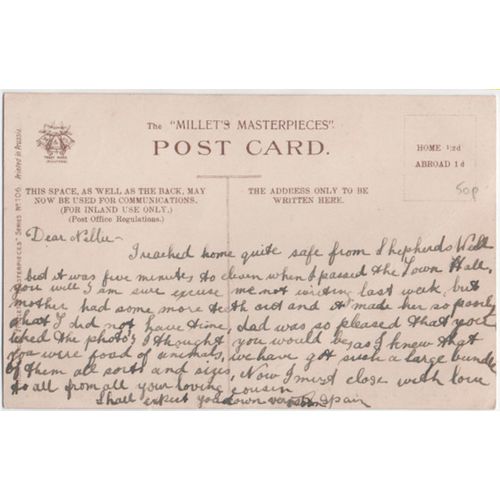 The "MILLET'S MASTERPIECES"
POST CARD.
HOME ½d
ABROAD 1d
50p
"MASTERPIECES" SERIES Nº 706 Printed in Prussia.
THIS SPACE, AS WELL AS THE BACK, MAY
NOW BE USED FOR COMMUNICATIONS.
(FOR INLAND USE ONLY.)
(Post Office Regulations.)
THE ADDRESS ONLY TO BE
WRITTEN HERE.
Dear Nellie -
I reached home quite safe from Shepherds Well
but it was five minutes to eleven when I passed the Town Hall,
you will I am sure excuse me not writing last week, but
mother had some more teeth out and it made her so poorly
that I did not have time, Dad was so pleased that you
liked the photo, I thought you would be, as I knew that
you were fond of animals, we have got such a large bundle
of them all sorts and sizes, Now I must close with love
to all from all your loving cousin
Shall expect you down very soon